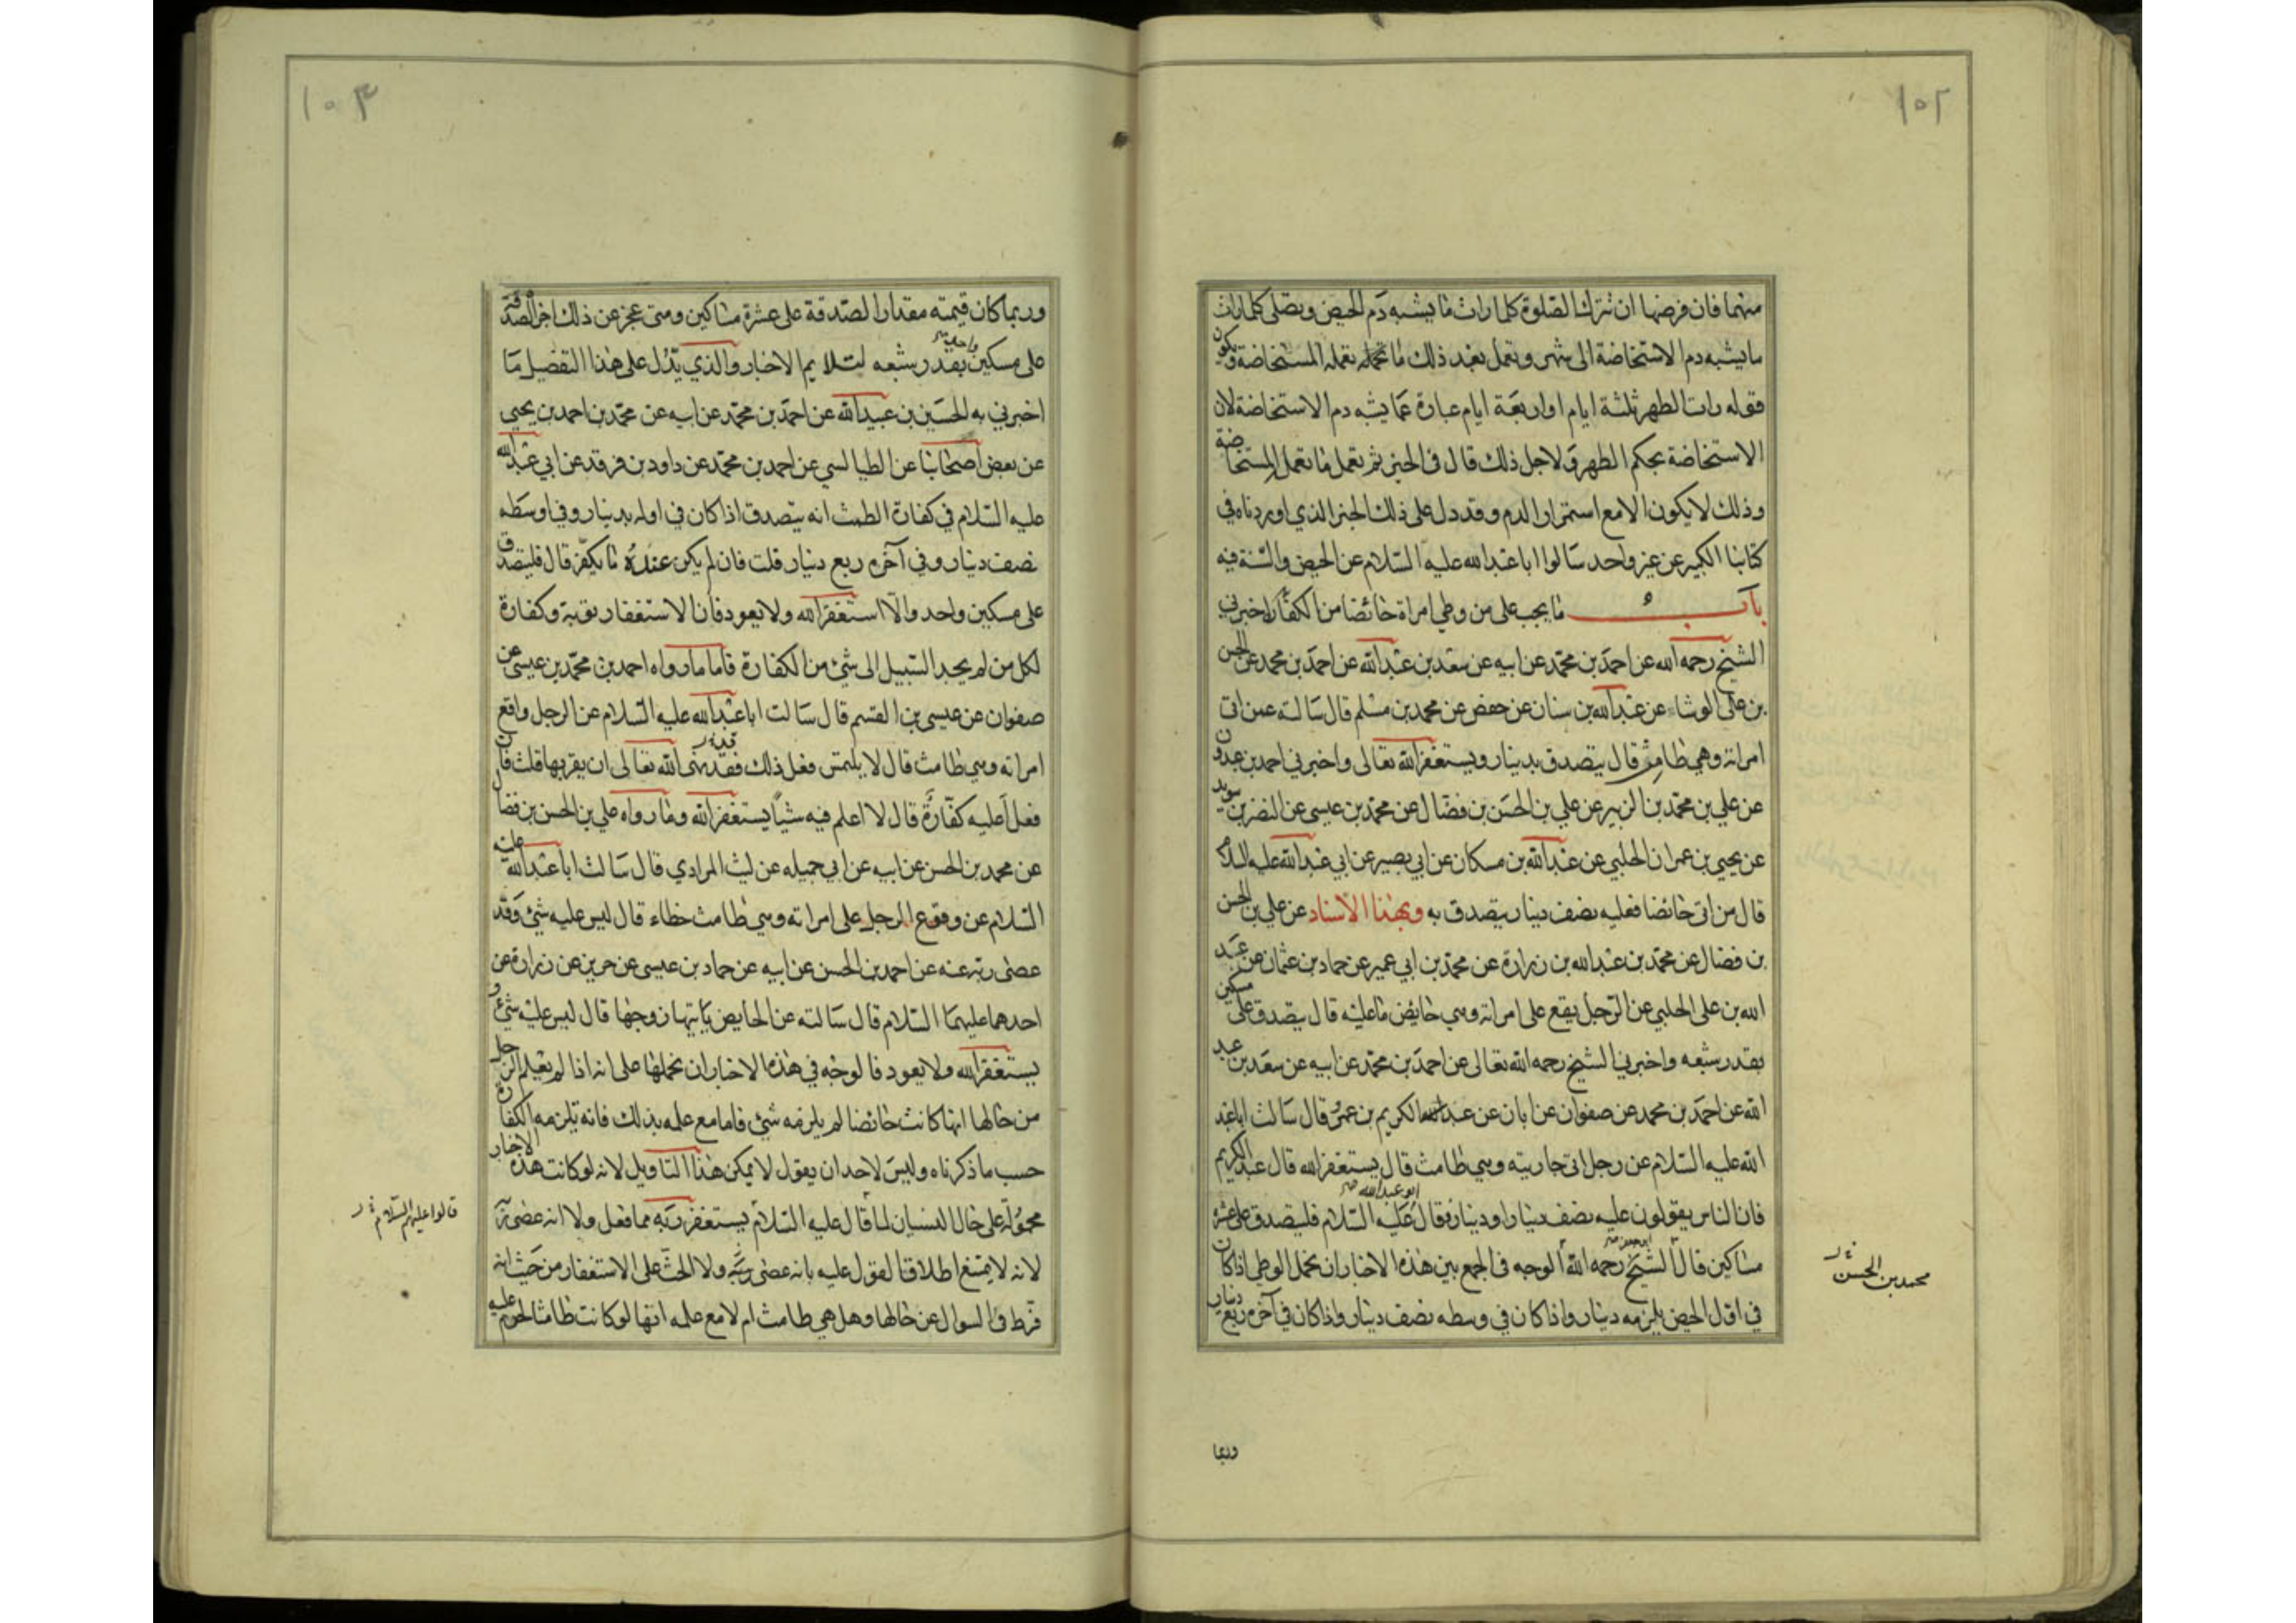 ١٠٢
منهما فان فرضها ان تترك الصلوة كلما رات ما يشبه دم الحيض وتصلى كلما رات
ما يشبه دم الاستحاضة الى شهر وتعمل بعد ذلك ما تعمله المستحاضة ويكون
قوله رات الطهر ثلثة ايام او اربعة ايام عبارة عما يشبه دم الاستحاضة لان
الاستحاضة بحكم الطهر ولاجل ذلك قال فى الخبر ثم تعمل ما تعمل المستحاضة
وذلك لا يكون الا مع استمرار الدم وقد دل على ذلك الخبر الذي اوردناه في
كتابنا الكبير عن غير واحد سالوا ابا عبدالله عليه السلام عن الحيض والسنة فيه
باب ما يجب على من وطى امراة حائضا من الكفارة اخبرني
الشيخ رحمه الله عن احمد بن محمد عن ابيه عن سعد بن عبدالله عن احمد بن محمد عن الحسن
بن على الوشاء عن عبدالله بن سنان عن حفص عن محمد بن مسلم قال سالته عمن اتى
امراته وهي طامث قال يتصدق بدينار ويستغفر الله تعالى واخبرني احمد بن عبدون
عن علي بن محمد بن الزبير عن علي بن الحسن بن فضال عن محمد بن عيسى عن النضر بن سويد
عن يحيى بن عمران الحلبي عن عبدالله بن مسكان عن ابي بصير عن ابي عبدالله عليه السلام
قال من اتى حائضا فعليه نصف دينار يتصدق به وبهذا الاسناد عن علي بن الحسن
بن فضال عن محمد بن عبدالله بن زرارة عن محمد بن ابي عمير عن حماد بن عثمان عن عبيد
الله بن على الحلبي عن الرجل يقع على امراته وهي حايض ما عليه قال يتصدق على مسكين
بقدر شبعه واخبرني الشيخ رحمه الله تعالى عن احمد بن محمد عن ابيه عن سعد بن عبد
الله عن احمد بن محمد عن صفوان عن ابان عن عبد الكريم بن عمرو قال سالت ابا عبد
الله عليه السلام عن رجل اتى جاريته وهي طامث قال يستغفر الله قال عبد الكريم
فان الناس يقولون عليه نصف دينار او دينار فقال ابو عبدالله عليه السلام فليتصدق على عشرة
مساكين قال الشيخ ابو جعفر رحمه الله الوجه فى الجمع بين هذه الاخبار ان نحمل الوطى اذا كان
في اول الحيض يلزمه دينار واذا كان في وسطه نصف دينار واذا كان في آخره ربع دينار
محمد بن الحسن
وربما
١٠٣
وربما كان قيمته مقدار الصدقة على عشرة مساكين ومتى عجز عن ذلك اجزأه الصدقة
على مسكين واحد بقدر شبعه لتلايم الاخبار والذي يدل على هذا التفصيل ما
اخبرني به الحسين بن عبيدالله عن احمد بن محمد عن ابيه عن محمد بن احمد بن يحيى
عن بعض اصحابنا عن الطيالسي عن احمد بن محمد عن داود بن فرقد عن ابي عبدالله
عليه السلام في كفارة الطمث انه يتصدق اذا كان في اوله بدينار وفي اوسطه
نصف دينار وفي آخره ربع دينار قلت فان لم يكن عنده ما يكفر قال فليتصدق
على مسكين واحد والا استغفر الله ولا يعود فان الاستغفار توبة وكفارة
لكل من لم يجد السبيل الى شئ من الكفارة فاما ما رواه احمد بن محمد بن عيسى عن
صفوان عن عيسى بن القسم قال سالت ابا عبدالله عليه السلام عن الرجل واقع
امراته وهي طامث قال لا يلتمس فعل ذلك فقد نهى الله تعالى ان يقربها قلت فان
فعل اعليه كفارة قال لا اعلم فيه شيأ يستغفر الله وما رواه علي بن الحسن بن فضال
عن محمد بن الحسن عن ابيه عن ابي جميله عن ليث المرادي قال سالت ابا عبدالله عليه
السلام عن وقوع الرجل على امراته وهي طامث خطاء قال ليس عليه شئ وقد
عصى ربه عنه عن احمد بن الحسن عن ابيه عن حماد بن عيسى عن حريز عن زرارة عن
احدهما عليهما السلام قال سالته عن الحايض ياتيها زوجها قال ليس عليه شئ و
يستغفر الله ولا يعود فالوجه في هذه الاخبار ان نحملها على انه اذا لم يعلم الرجل
من حالها انها كانت حائضا لم يلزمه شئ فاما مع علمه بذلك فانه يلزمه الكفارة
حسب ما ذكرناه وليس لاحد ان يقول لا يمكن هذا التاويل لانه لو كانت هذه الاخبار
محمولة على حال النسيان لما قال عليه السلام يستغفر ربه مما فعل ولا انه عصى ربه
لانه لا يمتنع اطلاق القول عليه بانه عصى ربه ولا الحث على الاستغفار من حيث انه
فرط فى السوال عن حالها وهل هي طامث ام لا مع علمه انها لو كانت طامثا لحرم عليه
قالوا عليهم السلام